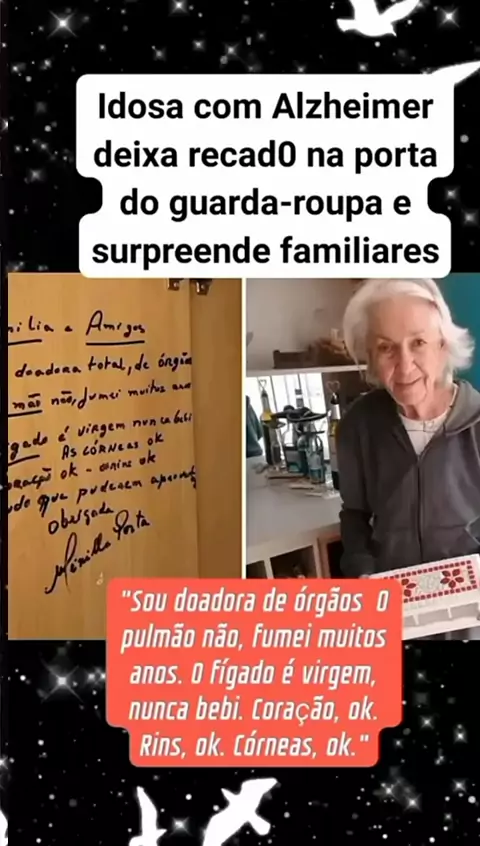 Idosa com Alzheimer
deixa recad0 na porta
do guarda-roupa e
surpreende familiares
ília e Amigos
doadora total, de órgão
mão não, fumei muitos anos
gado é virgem nunca bebi
AS CÓRNEAS OK
oração ok -
que puderem
obrigada
"Sou doadora de órgãos O
pulmão não, fumei muitos
anos. O fígado é virgem,
nunca bebi. Coração, ok.
Rins, ok. Córneas, ok."